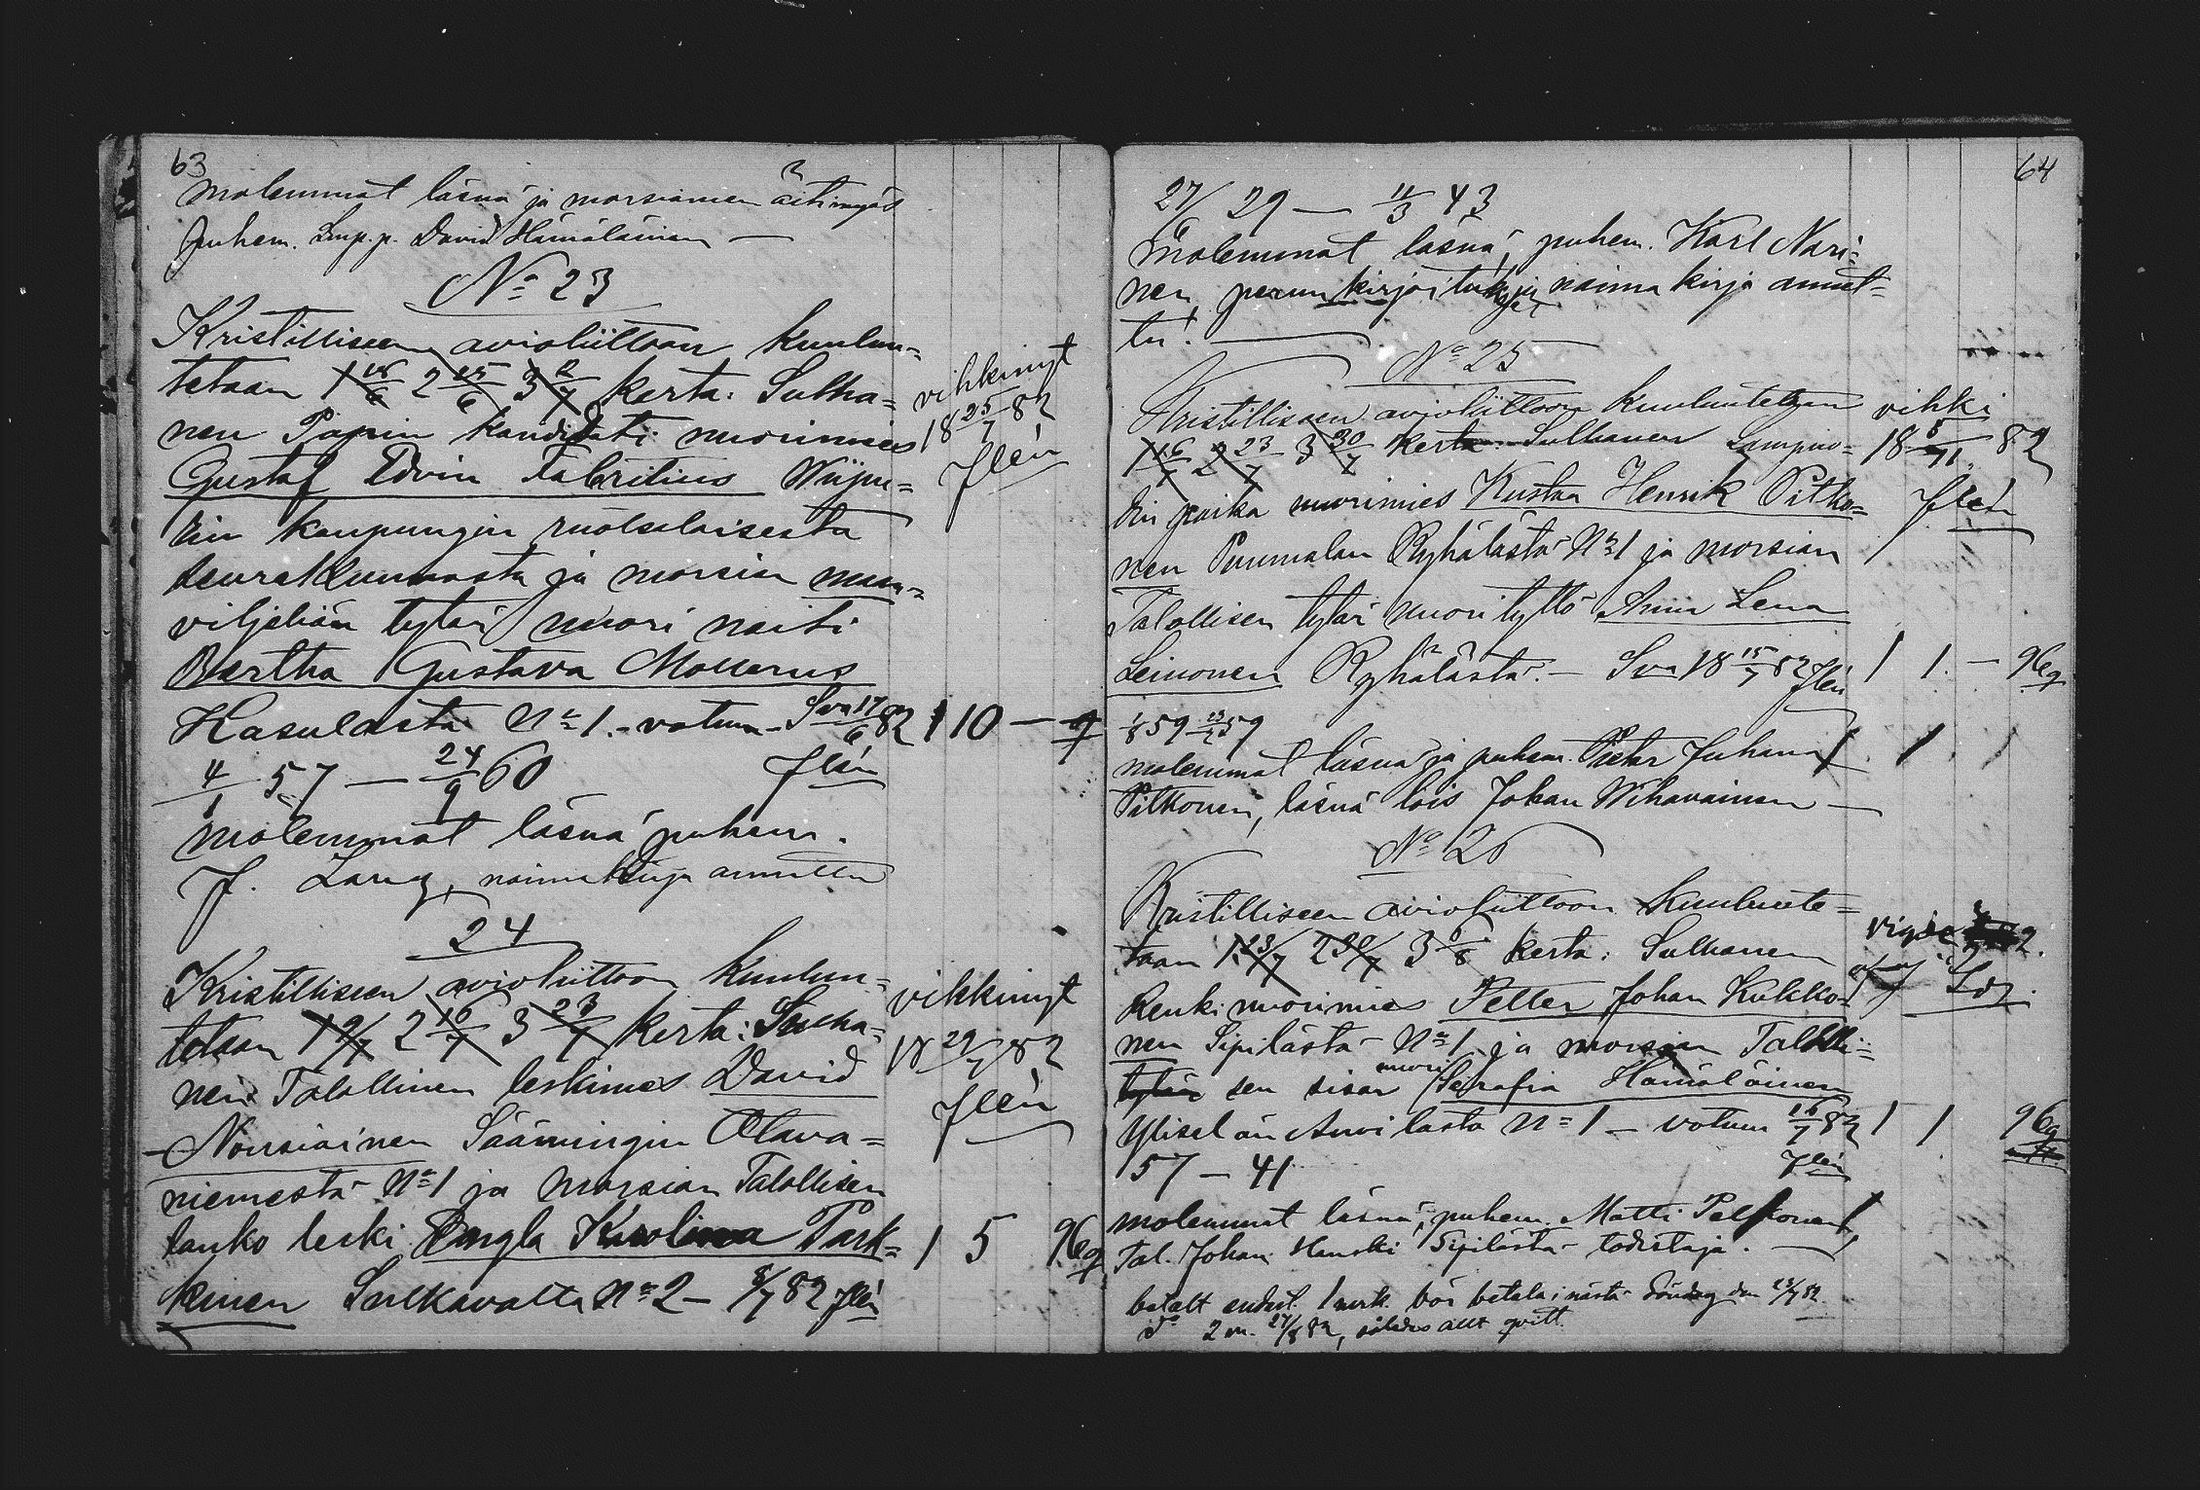 63
molemmat läsnä ja morsiamen äiti myös
puhem. Lmp.p. David Hämäläinen —
No 23
Kristilliseen avioliittoon kuulu=
tetaan 1 18/6 2 25/6 3 2/7 kerta: Sulha=
nen Papin kandidati nuorimies
Gustaf Edvin Fabritius Wiipu=
rin kaupungin ruotsalaisesta
seurakunnasta ja morsian maan=
viljeliän tytär nuori neiti
Bertha Gustava Mollerus
Kasulasta No 1. - votum - Sva 17/6 82
4/1 57 — 24/9 60 Jlén
molemmat läsnä puhem.
J. Lang, naimakirja annettu
vihkinyt
18 25/7 82
Jlén
1 10 —
24
Kristilliseen avioliittoon kuulu=
tetaan 1 9/7 2 16/7 3 23/7 kerta: Sulha=
nen Talollinen leskimies David
Nousiainen Säämingin Otava=
niemestä No 1 ja morsian Talollisen
lanko leski Engla Karolina Park=
kinen Sulkavalta No 2 — 8/7 82 Jlén
vihkinyt
18 29/7 82
Jlén
1 5 96
64
27/6 29 — 11/3 43
Molemmat läsnä, puhem. Karl Nari=
nen, perunkirjoitus ja naimakirja annet=
tu!
No 25
Kristilliseen avioliittoon kuulutetaan
1 16/7 2 23/7 3 30/7 kerta. Sulhanen Lampuo=
din poika nuorimies Kustaa Henrik Pitko=
nen Puumalan Ryhälästä No 1 ja morsian
Talollisen tytär nuori tyttö Anna Lena
Leinonen Ryhälästä. — Sva 18 15/7 82 Jlén
1/8 59 23/2 59
molemmat läsnä ja puhem. Pietar Juhana
Pitkonen, läsnä lois Johan Wihavainen —
vihki
18 5/11 82
Jlén
1 1 — 96
1 1
No 26
Kristilliseen avioliittoon kuulute=
taan 1 23/7 2 30/7 3 6/8 kerta: Sulhanen
Renki nuorimies Petter Johan Kukko=
nen Sipilästä No 1 ja morsian Talolli=
sen sisar nuori Serafia Hämäläinen
Ylisel än Auvilasta No 1 — votum 16/7 82
57 — 41 Jlén
molemmat läsnä, puhem. Matti Pelkonen,
Tal. Johan Hauski Sipilästä todistaja. —
betalt endast 1 mrk. bör betala i nästa Söndag den 23/7 82
do 2 m. 27/8 82, således allt qvitt.
vigde
af
1 1 96